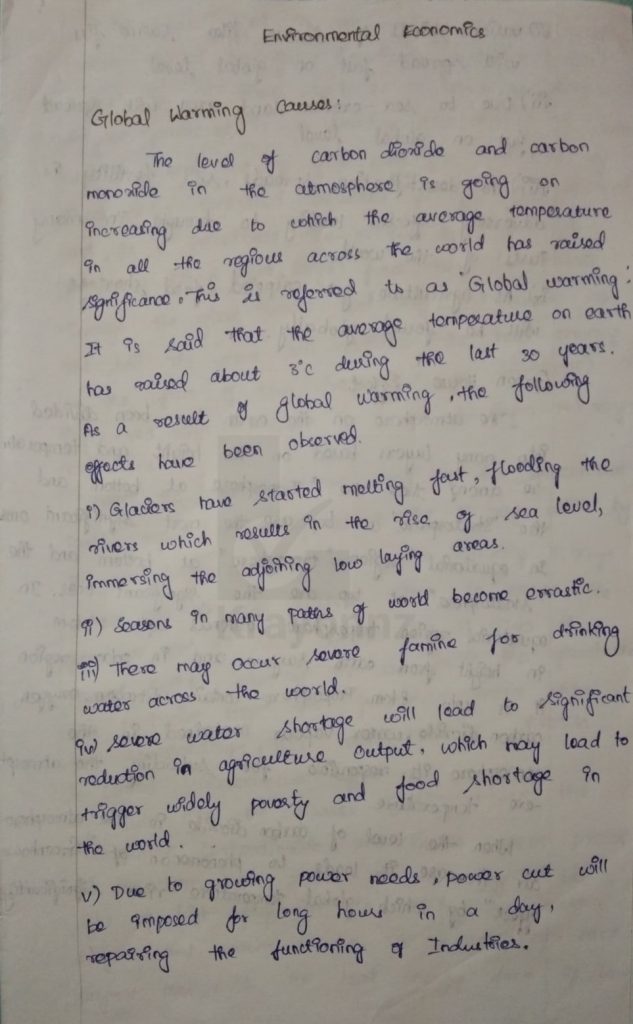 Environmental Economics
Global Warming Causes:
The level of carbon dioxide and carbon
monoxide in the atmosphere is going on
increasing due to which the average temperature
in all the regions across the world has raised
significance. This is referred to as 'Global warming'.
It is said that the average temperature on earth
has raised about 3°c during the last 30 years.
As a result of global warming, the following
effects have been observed.
i) Glaciers have started melting fast, flooding the
rivers which results in the rise of sea level,
immersing the adjoining low laying areas.
ii) Seasons in many paths of world become errastic.
iii) There may occur severe famine for drinking
water across the world.
iv) severe water shortage will lead to significant
reduction in agriculture output, which may lead to
trigger widely povesty and food shortage in
the world.
v) Due to growing power needs, power cut will
be imposed for long hours in a day,
repairing the functioning of Industries.